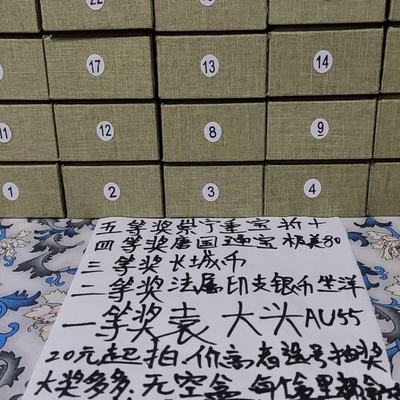 22
17
13
14
11
12
8
9
1
2
3
4
五等奖崇宁重宝折十
四等奖唐国通宝极美80
三等奖长城币
二等奖法属印支银币坐洋
一等奖袁大头AU55
20元起拍.价高者选号抽奖
大奖多多.无空盒每个盒里都